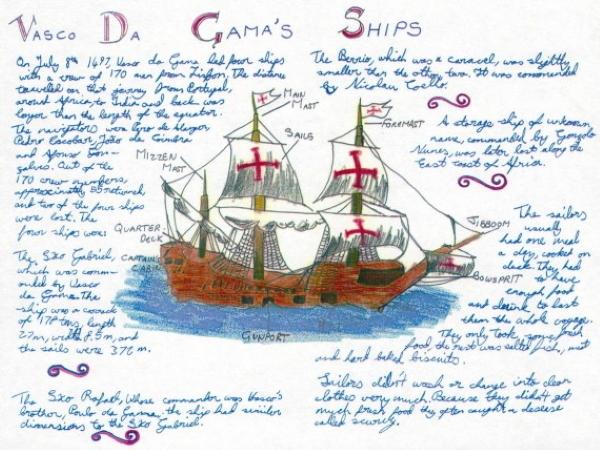 Vasco Da Gama's Ships
On July 8th 1497, Vasco da Gama led four ships
with a crew of 170 men from Lisbon. The distance
traveled on that journey from Portugal,
around Africa, to India and back was
longer than the length of the equator.
The navigators were Pero de
Pedro Escobar, João de Coimbra
and Afonso Gon-
çalves. Out of the
170 crew members,
approximately 55 returned
and two of the four ships
were lost. The
four ships were:
The São Gabriel,
which was comm-
anded by Vasco
da Gama. The
ship was a carack
of 178 tons, length
27m, width 8.5m, and
the sails were 372 m.
The São Rafael, whose commander was Vasco's
brother, Paulo da Gama. the ship had similar
dimensions to the São Gabriel.
Main
Mast
Sails
Foremast
Mizzen
Mast
Quarter
Deck
Captain's
Cabin
Gunport
Jibboom
Bowsprit
The Berrio, which was a caravel, was slightly
smaller than the other two. It was commanded
by Nicolau Coello.
A storage ship of unknown
name, commanded by Gonçalo
Nunes, was later lost along the
East coast of Africa.
The sailors
usually
had one meal
a day, cooked on
deck. They had
to have
enough food
and drink to last
them the whole voyage.
They only took some fresh
food, the rest was salted fish, meat
and hard baked biscuits.
Sailors didn't wash or change into clean
clothes very much. Because they didn't get
much fresh food they often caught a desease
called scurvy.